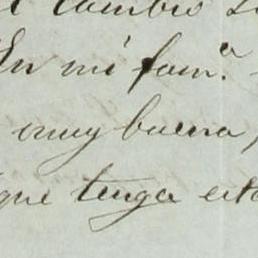 cambio
En mi fam.ª
muy buena,
que tenga esta